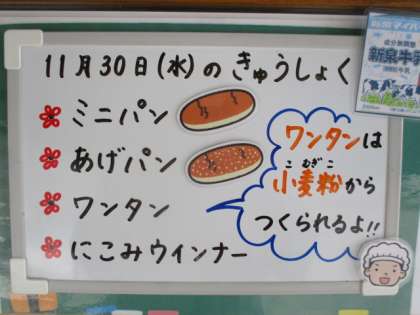 11月30日(水)のきゅうしょく
ミニパン
あげパン
ワンタン
にこみウインナー
ワンタンは
こむぎこ
小麦粉から
つくられるよ!!